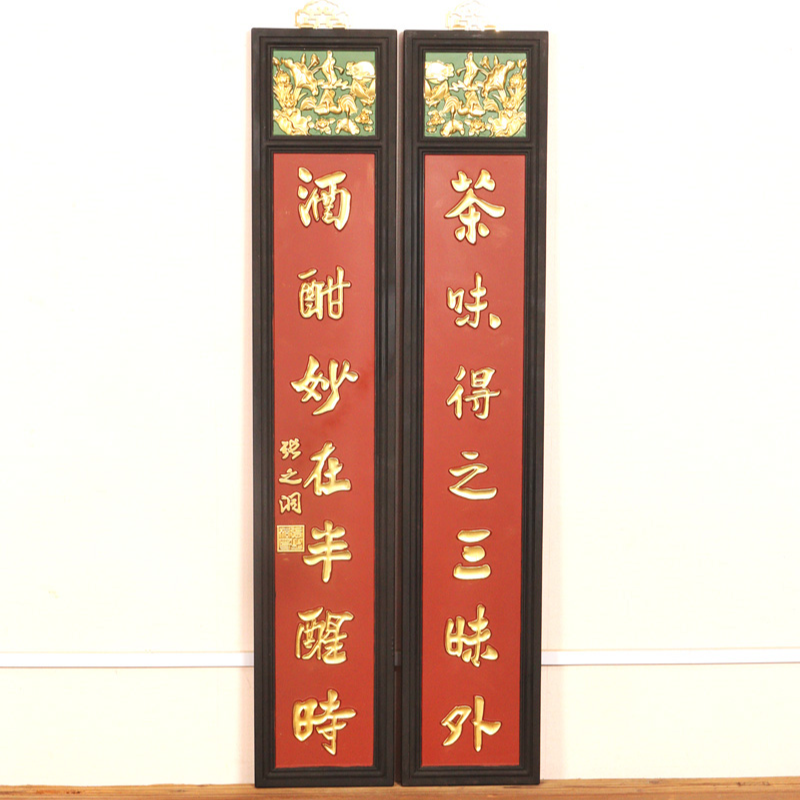 茶味得之三昧外
酒酣妙在半醒時
张之洞